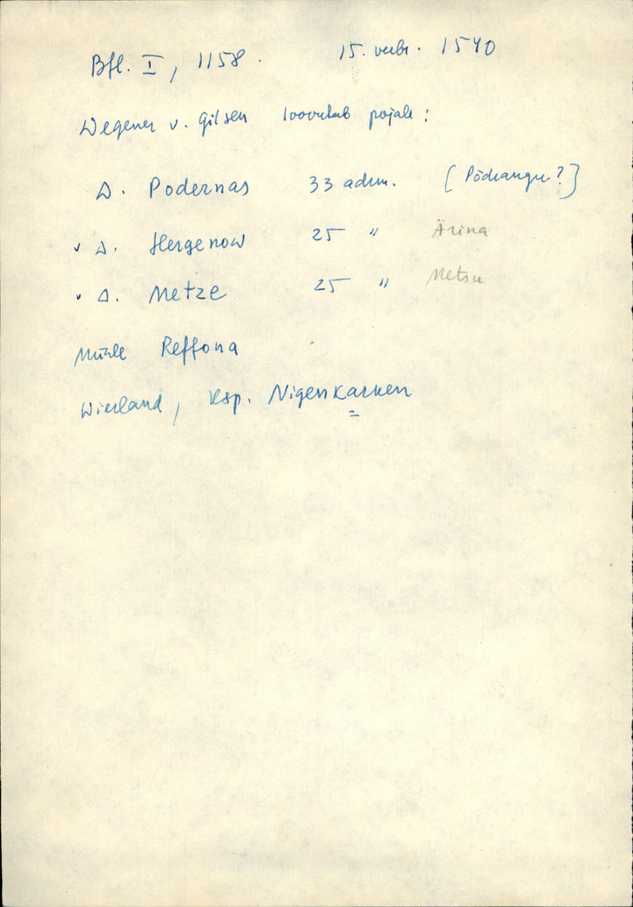 Bfl. I, 1158. 15. veebr. 1540
Wegener v. Gilsen loovutab pojale:
D. Podernas 33 adrm. [Põdrangu?]
v D. Hergenow 25 " Ärina
v D. Metze 25 " Metsu
Mühle Reffona
Wierland, Ksp. Nigenkarken